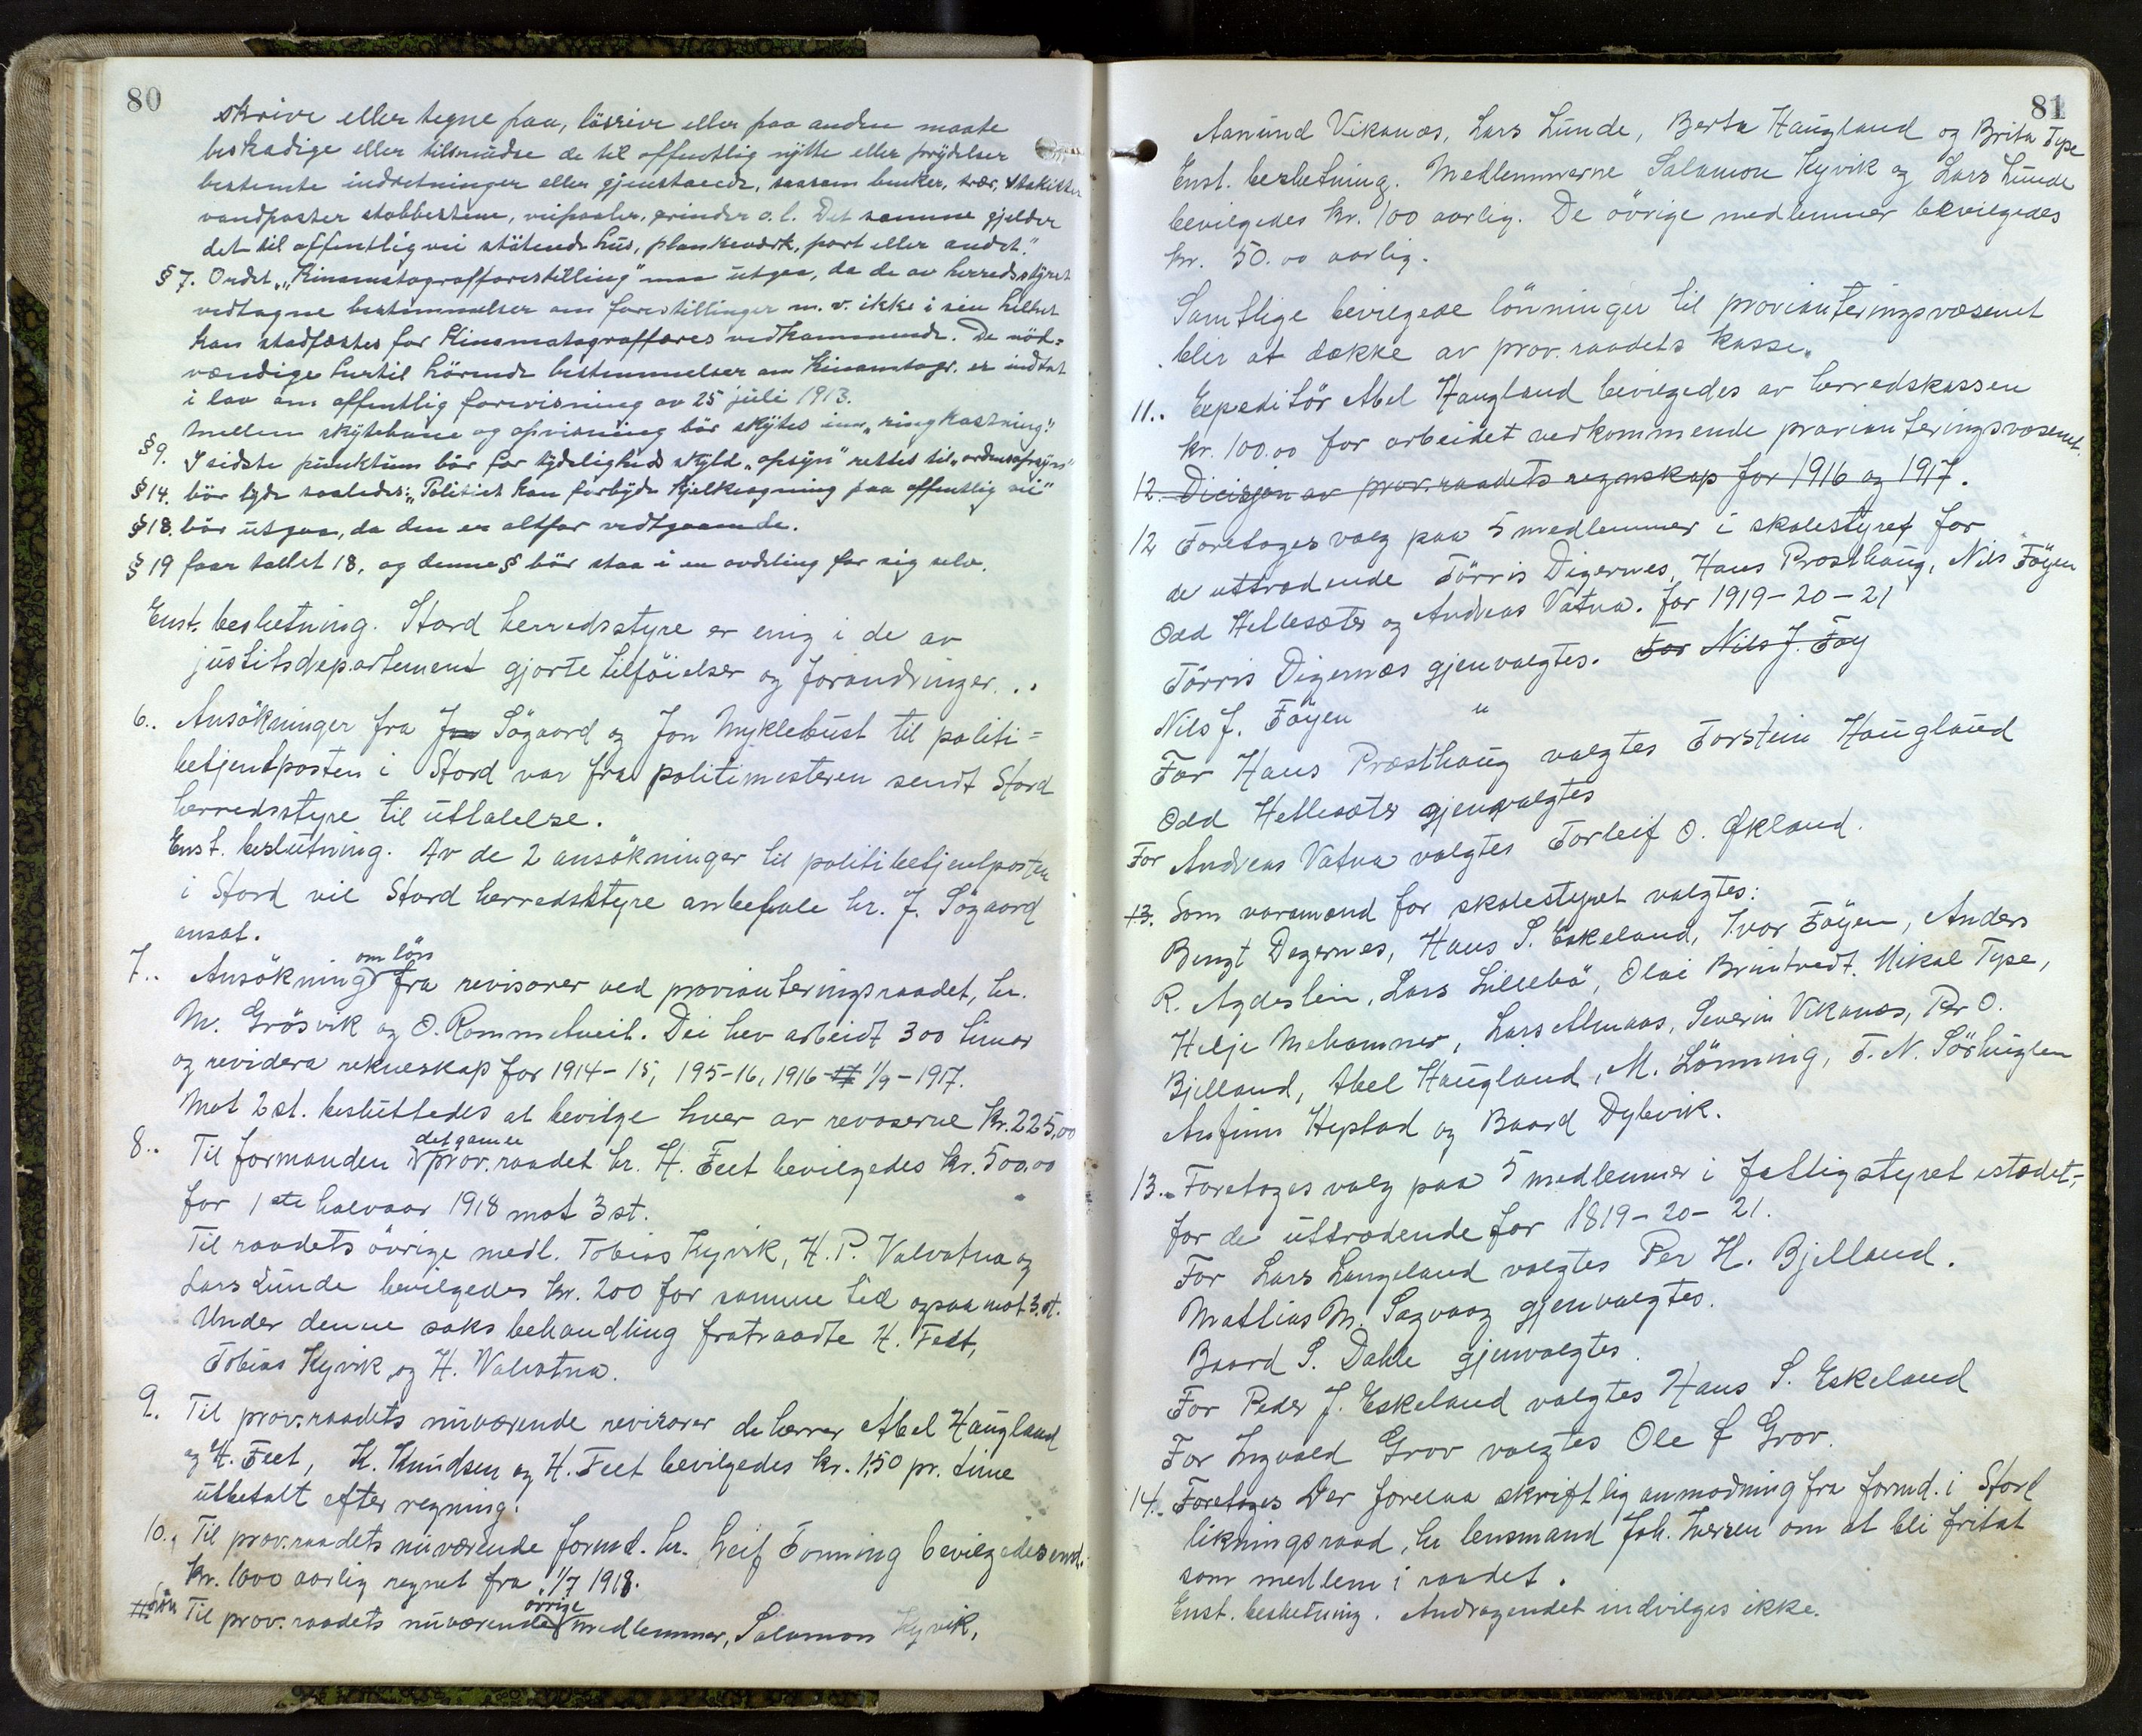 80
skrive eller tegne paa, lösrive eller paa anden maate
beskadige eller tilsmudse de til offentlig nytte eller prydelser
bestemte indretninger eller gjenstaende, saasom benker, trær, stakitter
vandposter stabbestene, veipæler, grinder o. l. Det samme gjelder
det til offentlig vei stötende hus, plankeverk, port eller andet."
§ 7. Ordet „Kinematografforestilling" maa utgaa, da de av herredsstyret
vedtagne bestemmelser om forestillinger m. v. ikke i sin helhet
kan stadfæstes for Kinematograffers vedkommende. De nöd=
vændige hertil hörende bestemmelser om Kinamtogr. er indtat
i lov om offentlig forevisning av 25 juli 1913.
Mellem skytebane og opvisning bör skytes inn „ringkastning".
§ 9. I sidste punktum bör for tydeligheds skyld „opsyn" rettes til „ordensopsyn"
§ 14. bör lyde saaledes: „Politiet kan forbyde kjelkeagning paa offentlig vei"
§ 18. bör utgaa, da den er altfor vidtgaaende.
§ 19 faar tallet 18, og denne § bör staa i en avdeling for sig selv.
Enst. beslutning. Stord herredsstyre er enig i de av
justitsdepartement gjorte tilföielser og forandringer. ..
6.. Ansökninger fra J Sögaard og Jon Myklebust til politi=
betjentposten i Stord var fra politimesteren sendt Stord
herredsstyre til uttalelse.
Enst. beslutning. Av de 2 ansökninger til politibetjentposten
i Stord vil Stord herredsstyre anbefale hr. J. Sögaard
ansat.
om lön
7.. Ansökning fra revisorer ved provianteringsraadet, hr.
M. Grösvik og O. Rommetveit. Dei hev arbeidt 300 timar
og revidera rekneskap for 1914-15, 195-16, 1916- 1/9-1917.
Mot 2 st. besluttedes at bevilge hver av revoserne kr. 225,00
det gamle
8.. Til formanden i prov.raadet hr. H. Feet bevilgedes kr. 500.00
for 1ste halvaar 1918 mot 3 st.
Til raadets övrige medl. Tobias Kyvik, H. P. Valvatna og
Lars Lunde bevilgedes kr. 200 for samme tid ogsaa mot 3 st.
Under denne saks behandling fratraadte H. Feet,
Tobias Kyvik og H. Valvatna.
9. Til prov.raadets nuværende revisorer de herrer Abel Haugland
og H. Feet, K. Knudsen og H. Feet bevilgedes kr. 1,50 pr. time
utbetalt efter regning.
10., Til prov.raadets nuværende formd. hr. Leif Tonning bevilgedes enst.
kr. 1000 aarlig regnet fra 1/7 1918.
övrige
Til prov.raadets nuværende medlemmer, Salamon Kyvik,
81
Aanund Vikanæs, Lars Lunde, Berta Haugland og Brita Tyse
Enst. beslutning. Medlemmerne Salamon Kyvik og Lars Lunde
bevilgedes kr. 100 aarlig. De övrige medlemmer bevilgedes
kr. 50.00 aarlig.
Samtlige bevilgede lönninger til provianteringsvæsenet
blir at dække av prov.raadets kasse.
11.. Expeditör Abel Haugland bevilgedes av herredskassen
kr. 100.00 for arbeidet vedkommende provianteringsvæsenet.
12. Dicisjon av prov.raadets regnskap for 1916 og 1917.
12 Foretages valg paa 5 medlemmer i skolestyret for
de uttrædende Törris Digernes, Hans Prosthaug, Nils Töyen
Odd Hellesæter og Andreas Vatna. for 1919-20-21
Törris Digernæs gjenvalgtes. For Nils J. Töy
Nils J. Töyen "
For Hans Præsthaug valgtes Torstein Haugland
Odd Hellesæter gjenvalgtes
For Andreas Vatna valgtes Torleif O. Økland.
13. Som varamænd for skolestyret valgtes:
Bengt Degernes, Hans S. Eskeland, Ivar Töyen, Anders
R. Agdestein, Lars Lillebö, Olai Bruntvedt. Mikal Tyse,
Helje Mehammer, Lars Almaas, Severin Vikanæs, Per O.
Bjelland, Abel Haugland, M. Lönning, T. N. Sörhuglen
Anfinn Heplad og Baard Dybvik.
13.. Foretages valg paa 5 medlemmer i fattigstyret istædet,
for de uttrædende for 1819-20-21.
For Lars Langeland valgtes Per H. Bjelland.
Mattias M. Sagvaag gjenvalgtes.
Baard S. Dahle gjenvalgtes.
For Peder J. Eskeland valgtes Hans S. Eskeland
For Ingvald Grov valgtes Ole J Grov.
14.. Foretages Der forelaa skriftlig anmodning fra formd. i Stord
likningsraad, hr lensmand Joh. Iversen om at bli fritat
som medlem i raadet.
Enst. beslutning. Andragendet indvilges ikke.